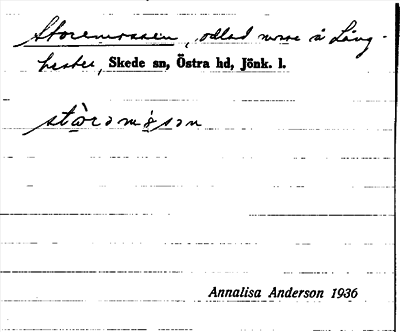 Storemossen, odlad mosse å Lång-
Skede sn, Östra hd, Jönk. l.
stòrəmòsən
Annalisa Anderson 1936